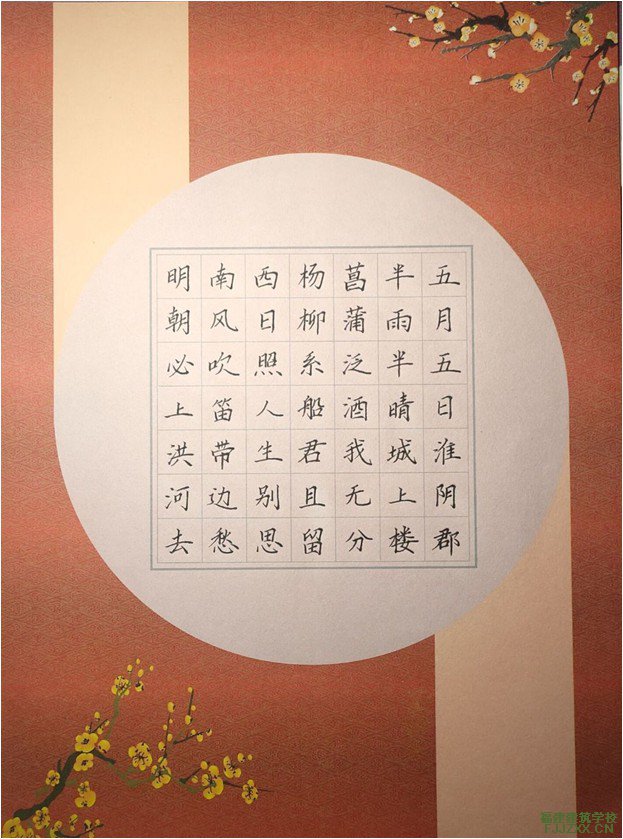 五月五日淮阴郡
半雨半晴城上楼
菖蒲泛酒我无分
杨柳系船君且留
西日照人生别思
南风吹笛带边愁
明朝必上洪河去
福建建筑学校
FJJZXX.CN